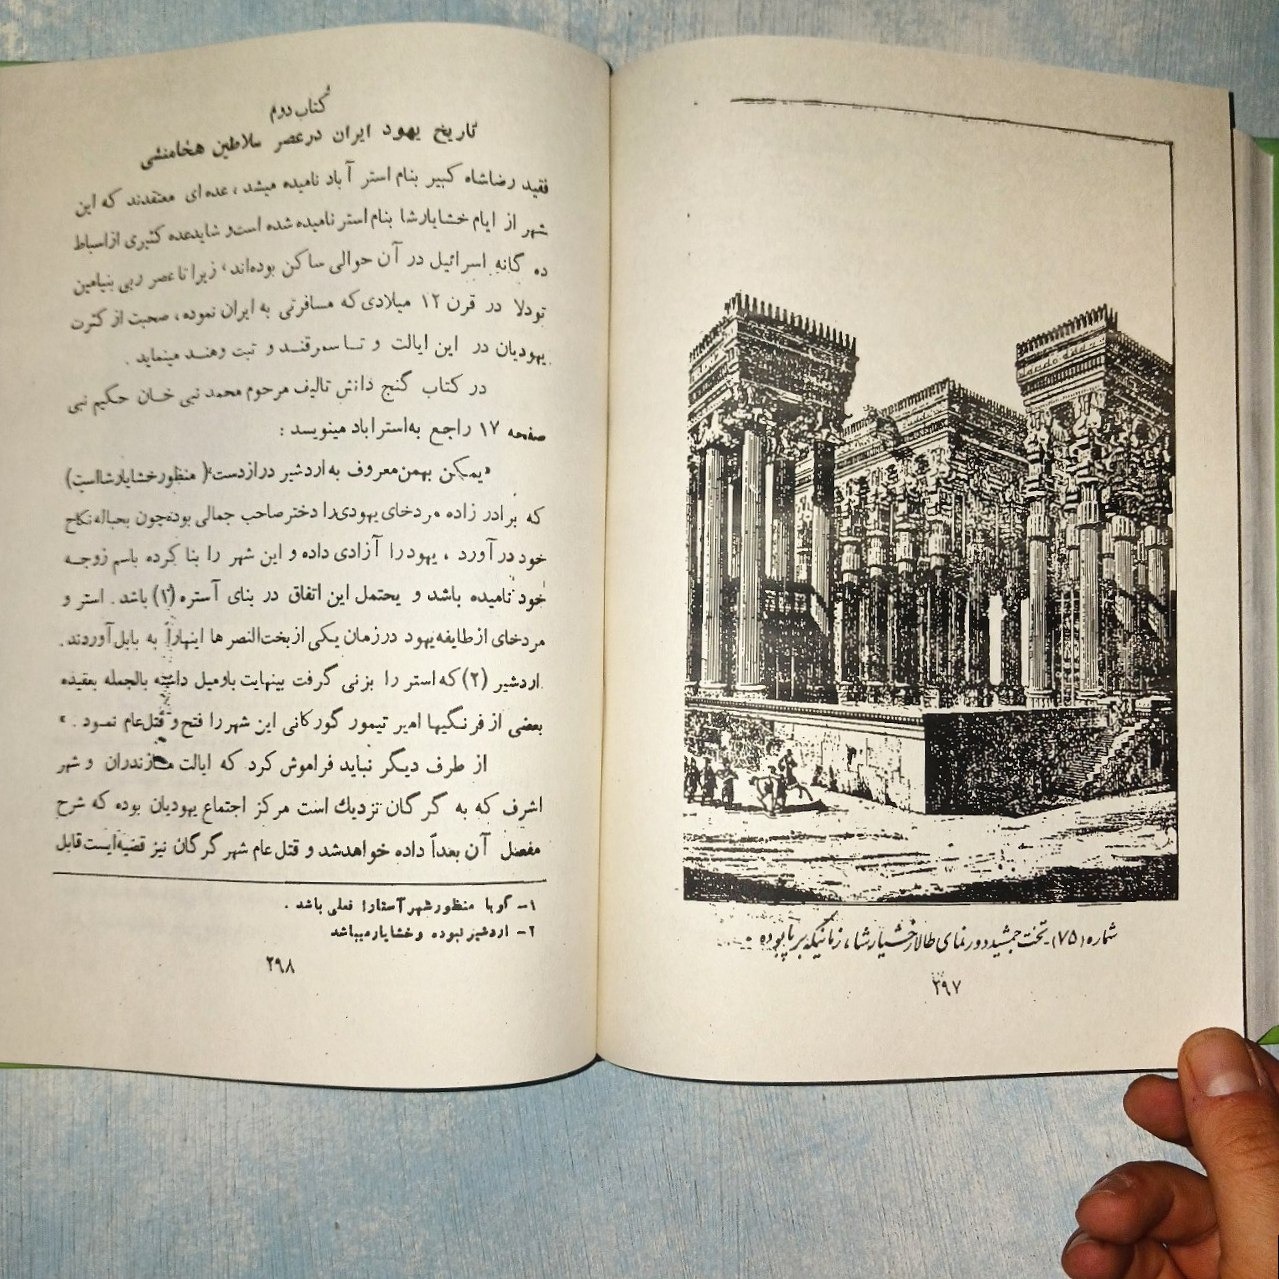 شماره (۷۵)- تخت جمشید دورنمای طالار خشیارشا، زمانیکه برپا بوده
۲۹۷
کتاب دوم
تاریخ یهود ایران در عصر سلاطین هخامنشی
فقید رضاشاه کبیر بنام استر آباد نامیده میشد، عده‌ای معتقدند که این
شهر از ایام خشایارشا بنام استر نامیده شده است و شاید عده کثیری از اسباط
ده گانه اسرائیل در آن حوالی ساکن بوده‌اند، زیرا تا عصر ربی بنیامین
تودلا در قرن ۱۲ میلادی که مسافرتی به ایران نموده، صحبت از کثرت
یهودیان در این ایالت و تا سمرقند و تبت و هند مینماید.
در کتاب گنج دانش تالیف مرحوم محمد نبی خان حکیم نبی
صفحه ۱۷ راجع به استراباد مینویسد:
«یمکن بهمن معروف به اردشیر درازدست (منظور خشایارشا است)
که برادر زاده مردخای یهودی را دختر صاحب جمالی بوده چون بحباله نکاح
خود در آورد، یهود را آزادی داده و این شهر را بنا کرده باسم زوجه
خود نامیده باشد و یحتمل این اتفاق در بنای آستره (۱) باشد. استر و
مردخای از طایفه یهود در زمان یکی از بخت‌النصرها اینها را به بابل آوردند.
اردشیر (۲) که استر را بزنی گرفت بینهایت باو میل داشته بالجمله بعقیده
بعضی از فرنگیها امیر تیمور گورکانی این شهر را فتح و قتل عام نمود.»
از طرف دیگر نباید فراموش کرد که ایالت مازندران و شهر
اشرف که به گرگان نزدیك است مرکز اجتماع یهودیان بوده که شرح
مفصل آن بعداً داده خواهد شد و قتل عام شهر گرگان نیز قضیه‌ایست قابل
۱- گویا منظور شهر آستارا فعلی باشد.
۲- اردشیر نبوده و خشایار میباشد
۲۹۸